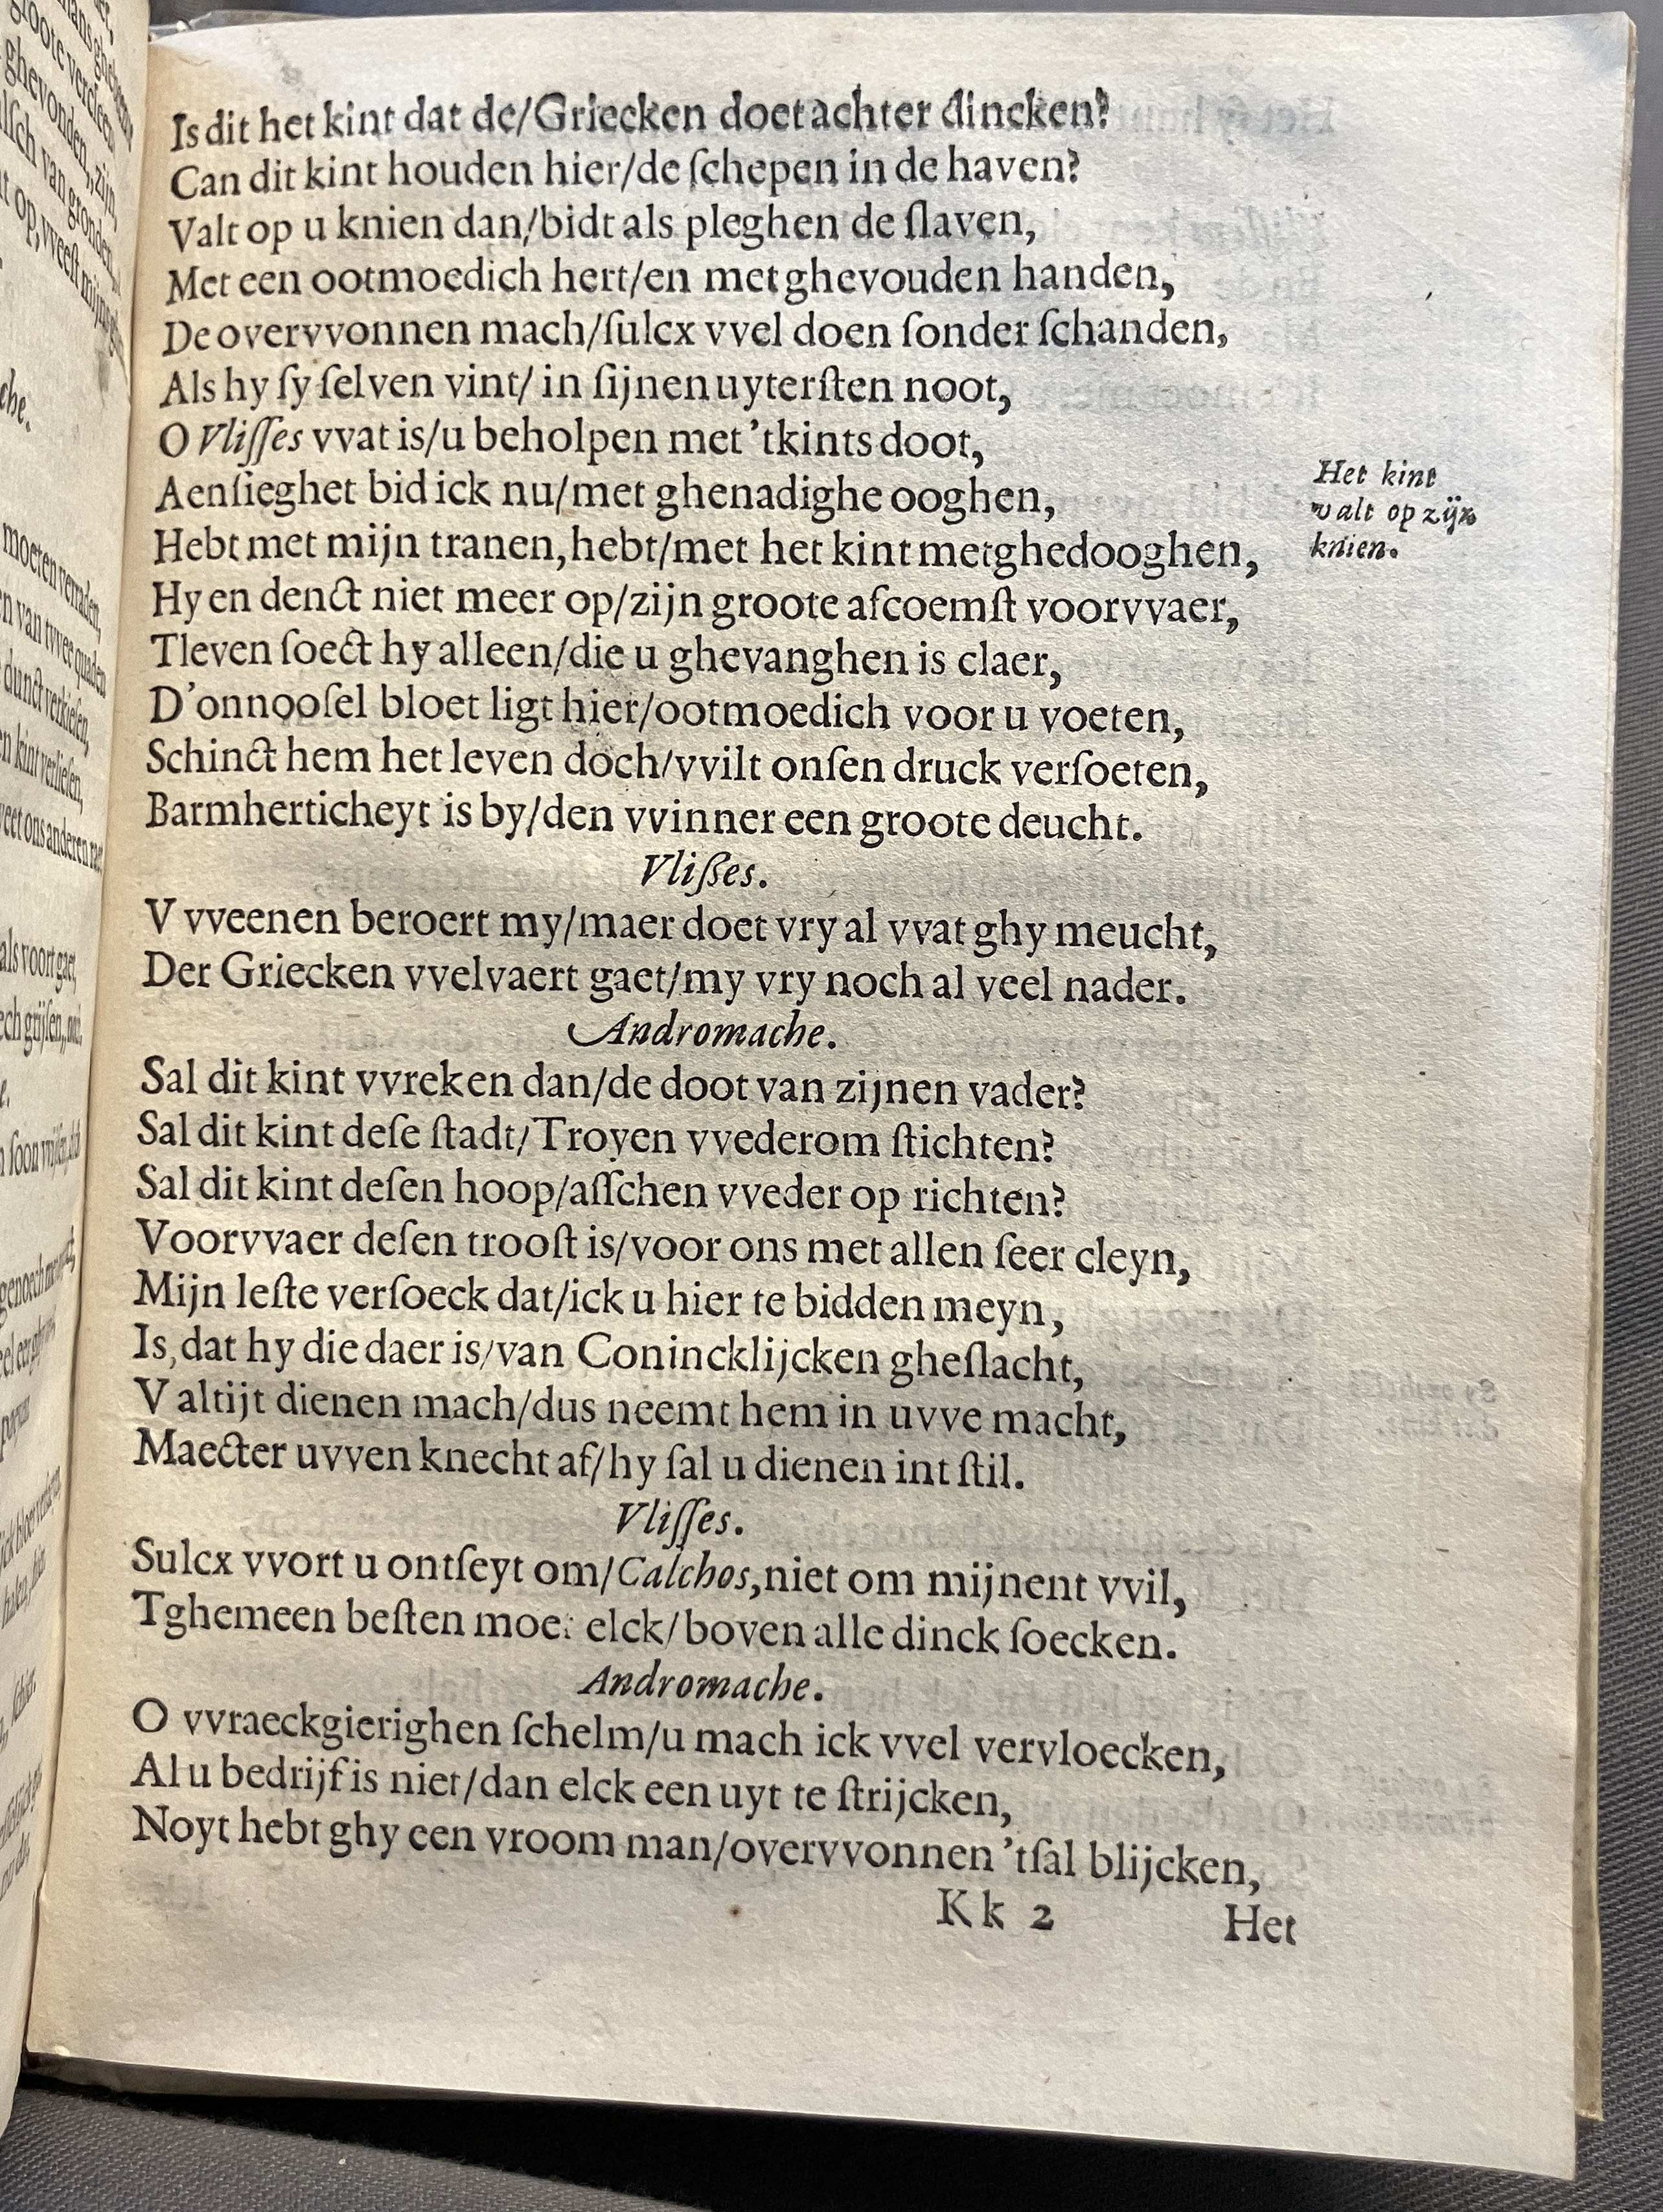 Is dit het kint dat de/Griecken doet achter dincken?
Can dit kint houden hier/de ſchepen in de haven?
Valt op u knien dan/bidt als pleghen de ſlaven,
Met een ootmoedich hert/en met ghevouden handen,
De overvvonnen mach/ſulcx vvel doen ſonder ſchanden,
Als hy ſy ſelven vint/ in ſijnen uyterſten noot,
O Vliſſes vvat is/u beholpen met 'tkints doot,
Aenſieghet bid ick nu/met ghenadighe ooghen,
Hebt met mijn tranen, hebt/met het kint metghedooghen,
Het kint
valt op zijn
knien.
Hy en denct niet meer op/zijn groote afcoemſt voorvvaer,
Tleven ſoect hy alleen/die u ghevanghen is claer,
D'onnooſel bloet ligt hier/ootmoedich voor u voeten,
Schinct hem het leven doch/vvilt onſen druck verſoeten,
Barmherticheyt is by/den vvinner een groote deucht.
Vliſſes.
V vveenen beroert my/maer doet vry al vvat ghy meucht,
Der Griecken vvelvaert gaet/my vry noch al veel nader.
Andromache.
Sal dit kint vvreken dan/de doot van zijnen vader?
Sal dit kint deſe ſtadt/Troyen vvederom ſtichten?
Sal dit kint deſen hoop/aſſchen vveder op richten?
Voorvvaer deſen trooſt is/voor ons met allen ſeer cleyn,
Mijn leſte verſoeck dat/ick u hier te bidden meyn,
Is, dat hy die daer is/van Conincklijcken gheſlacht,
V altijt dienen mach/dus neemt hem in uvve macht,
Maecter uvven knecht af/hy ſal u dienen int ſtil.
Vliſſes.
Sulcx vvort u ontſeyt om/Calchos, niet om mijnent vvil,
Tghemeen beſten moet elck/boven alle dinck ſoecken.
Andromache.
O vvraeckgierighen ſchelm/u mach ick vvel vervloecken,
Al u bedrijf is niet/dan elck een uyt te ſtrijcken,
Noyt hebt ghy een vroom man/overvvonnen 'tſal blijcken,
Kk 2 Het